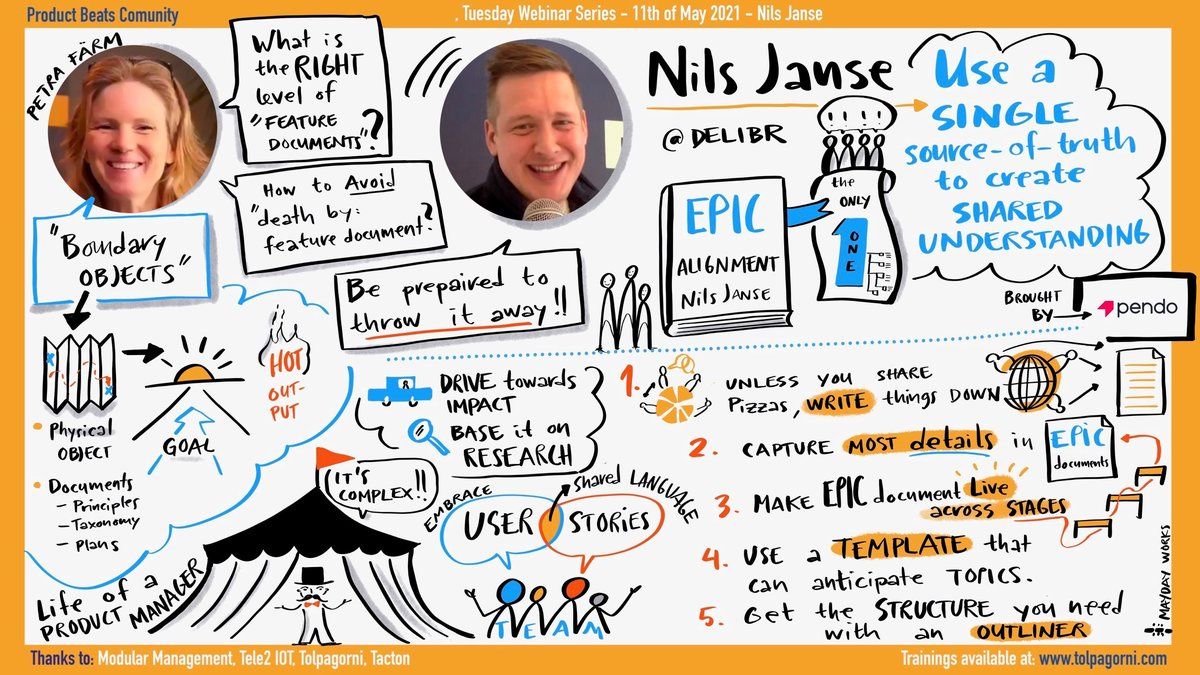 Product Beats Comunity
, Tuesday Webinar Series - 11th of May 2021 - Nils Janse
PETRA FÄRM
What is
the RIGHT
level of
"FEATURE
DOCUMENTS"?
How to Avoid
"death by:
feature document?
"Boundary
OBJECTS"
Be prepaired to
throw it away!!
Nils Janse
@DELIBR
EPIC
ALIGNMENT
Nils JANSE
! ! ! !
the
ONLY
1
ONE
Use a
SINGLE
source-of-truth
to create
SHARED
UNDERSTANDING
BROUGHT
BY
pendo
Physical
OBJECT
Documents
- Principles
- Taxonomy
- Plans
GOAL
HOT
OUT-
PUT
DRIVE towards
IMPACT
BASE it on
RESEARCH
IT'S
COMPLEX!!
Life of a
PRODUCT MANAGER
EMBRACE
USER STORIES
Shared LANGUAGE
TEAM
1. UNLESS YOU SHARE
Pizzas, WRITE things DOWN
2. CAPTURE MOST details in
EPIC
documents
3. MAKE EPIC document Live
across STAGES
4. USE a TEMPLATE that
can anticipate TOPICS.
5. Get the STRUCTURE you need
with an OUTLINER
MAYDAY WORKS
Thanks to: Modular Management, Tele2 IOT, Tolpagorni, Tacton
Trainings available at: www.tolpagorni.com